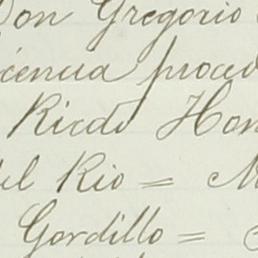 Don Gregorio
icencia proced
Ricdo Hon
del Rio = M
Gordillo =